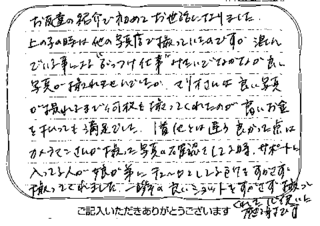 お友達の紹介で初めてお世話になりました。
上の子の時は他の写真店で撮っていたのですが 混んで
でいる事による"ぶっつけ仕事"みたいでなかなか良い
写真が撮れませんでしたが、マリオさんは良い写真
が撮れるまで何枚も撮ってくれたのが 高いお金
を払っても満足でした。 他とは違う良かった点は
カメラマンさんが撮った写真の確認をしてる時、サポートに
入ってる人が娘が弟にチューしてる所をすかさず
撮ってくれました 一番の良いショットをすかさず撮って
くれた
ご記入いただきありがとうございます